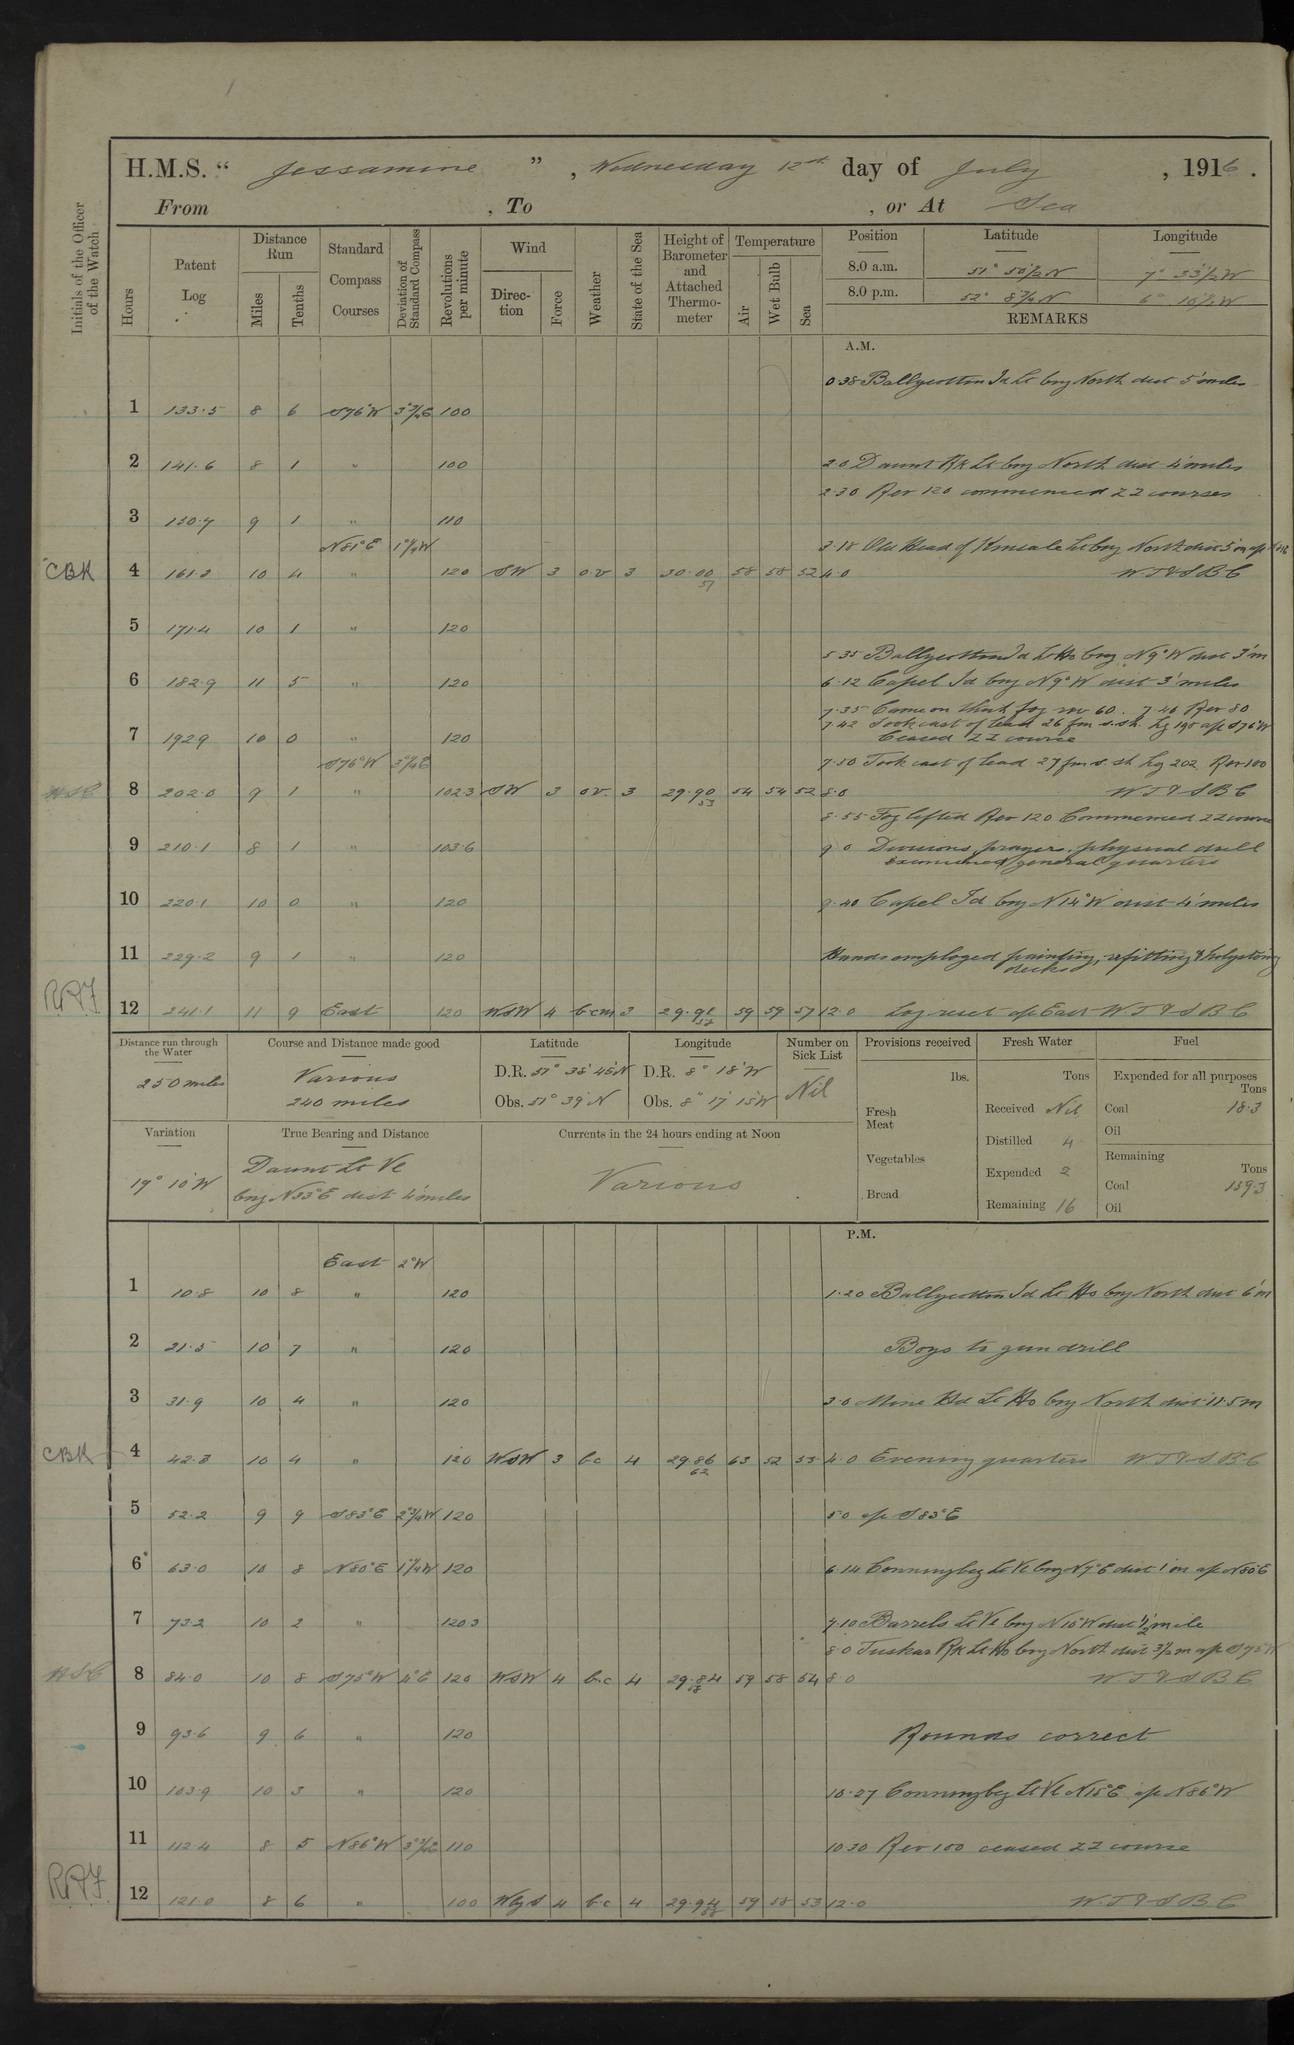 H.M.S. “ Jessamine ” , Wednesday 12th day of July , 1916 .
From , To , or At Sea
Initials of the Officer of the Watch
Hours
Patent Log
Distance Run
Miles
Tenths
Standard Compass Courses
Deviation of Standard Compass
Revolutions per minute
Wind
Direction
Force
Weather
State of the Sea
Height of Barometer and Attached Thermometer
Temperature
Air
Wet Bulb
Sea
Position Latitude Longitude
8.0 a.m. 51° 50½ N 7° 33½ W
8.0 p.m. 52° 8¾ N 6° 16½ W
REMARKS
A.M.
0.38 Ballycotton Id Lt brg North dist 5' miles
1 133.5 8 6 S76°W 3¾°E 100
2 141.6 8 1 " 100 2.0 Daunt Rk Lt brg North dist 4' miles
2.30 Rev 120 commenced ZZ courses
3 150.7 9 1 " 110
N81°E 1¼°W 3.18 Old Head of Kinsale Lt brg North dist 5'm a/c
CBK 4 161.2 10 4 " 120 SW 3 o.v 3 30.00 57 58 58 52 4.0 W.T & S.B.C
5 171.4 10 1 " 120
5.35 Ballycotton Id Lt Ho brg N9°W dist 3'm
6 182.9 11 5 " 120 6.12 Capel Id brg N9°W dist 3' miles
7.35 Came on thick fog rev 60. 7.40 Rev 80
7 192.9 10 0 " 120 7.42 Took cast of lead 26 fm s.sh. Lg 198 a/c S76°W
Ceased ZZ course
S76°W 3¾°E 7.50 Took cast of lead 27 fm s. sh Lg 202 Rev 100
8 202.0 9 1 " 102.3 SW 3 o.v. 3 29.90 53 54 54 52 8.0 W.T & S.B.C
8.55 Fog lifted Rev 120 Commenced ZZ course
9 210.1 8 1 " 103.6 9.0 Divisions, prayers, physical drill
Exercised general quarters
10 220.1 10 0 " 120 9.40 Capel Id brg N14°W dist 4' miles
11 229.2 9 1 " 120 Hands employed painting, refitting & holystoning
decks
RRF 12 241.1 11 9 East 120 WSW 4 b.c.m 3 59 59 57 12.0 Log reset a/c East W.T & S.B.C
Distance run through the Water
250 miles
Course and Distance made good
Various
240 miles
Latitude
D.R. 51° 38' 45" N
Obs. 51° 39' N
Longitude
D.R. 8° 18' W
Obs. 8° 17' 15" W
Number on Sick List
Nil
Provisions received
lbs.
Fresh Meat
Vegetables
Bread
Fresh Water
Tons
Received Nil
Distilled 4
Expended 2
Remaining 16
Fuel
Expended for all purposes
Tons
Coal 18.3
Oil
Remaining
Tons
Coal 139.3
Oil
Variation
19° 10' W
True Bearing and Distance
Daunt Lt Ve
brg N33°E dist 4' miles
Currents in the 24 hours ending at Noon
Various
P.M.
East 2°W
1 10.8 10 8 " 120 1.20 Ballycotton Id Lt Ho brg North dist 6'm
2 21.5 10 7 " 120 Boys to gun drill
3 31.9 10 4 " 120 3.0 Mine Hd Lt Ho brg North dist 11.5m
CBK 4 42.3 10 4 " 120 WSW 3 b.c 4 29.86 62 63 52 53 4.0 Evening quarters W.T & S.B.C
5 52.2 9 9 S83°E 2¾°W 120 5.0 a/c S83°E
6 63.0 10 8 N80°E 1¼°W 120 6.14 Conningbeg Lt Ve brg N7°E dist 1'm a/c N80°E
7 73.2 10 2 " 120.3 7.10 Barrels Lt Ve brg N15°W dist ½ mile
8.0 Tuskar Rk Lt Ho brg North dist 3½m a/c S75°W
8 84.0 10 8 S75°W 4°E 120 WSW 4 b.c 4 29.84 59 58 54 8.0 W.T & S.B.C
9 93.6 9 6 " 120 Rounds correct
10 103.9 10 3 " 120 10.27 Conningbeg Lt Ve N15°E a/c N86°W
11 112.4 8 5 N86°W 110 10.30 Rev 100 ceased ZZ course
RRF 12 121.0 8 6 " 100 WbyS 4 b.c 4 59 58 53 12.0 W.T & S.B.C